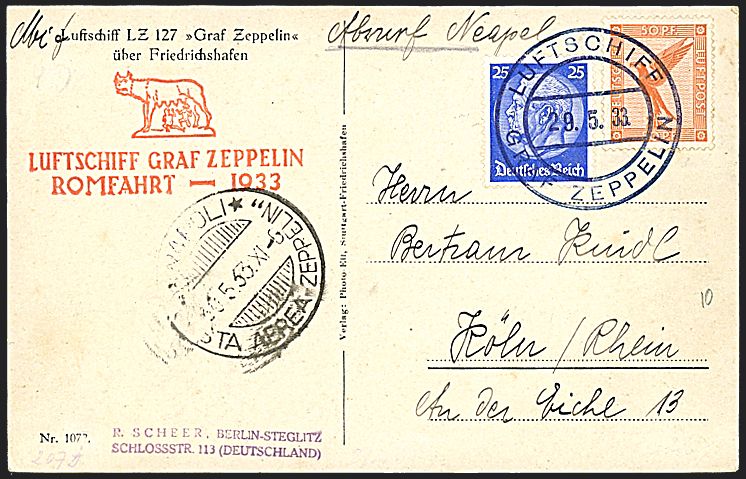 Luftschiff LZ 127 »Graf Zeppelin«
über Friedrichshafen
LUFTSCHIFF GRAF ZEPPELIN
ROMFAHRT — 1933
NAPOLI ★ "ZEPPELIN"
5.33.XI-
POSTA AEREA
Nr. 107
R. SCHEER, BERLIN-STEGLITZ
SCHLOSSSTR. 113 (DEUTSCHLAND)
Verlag: Photo-Eit, Stuttgart-Friedrichshafen
Abwurf Neapel
25 25
Deutsches Reich
50 PF.
LUFTPOST
LUFTSCHIFF
29.5.33.
GRAF ZEPPELIN
Herrn
Bertram Kindl
Köln / Rhein
An der Eiche 13
10